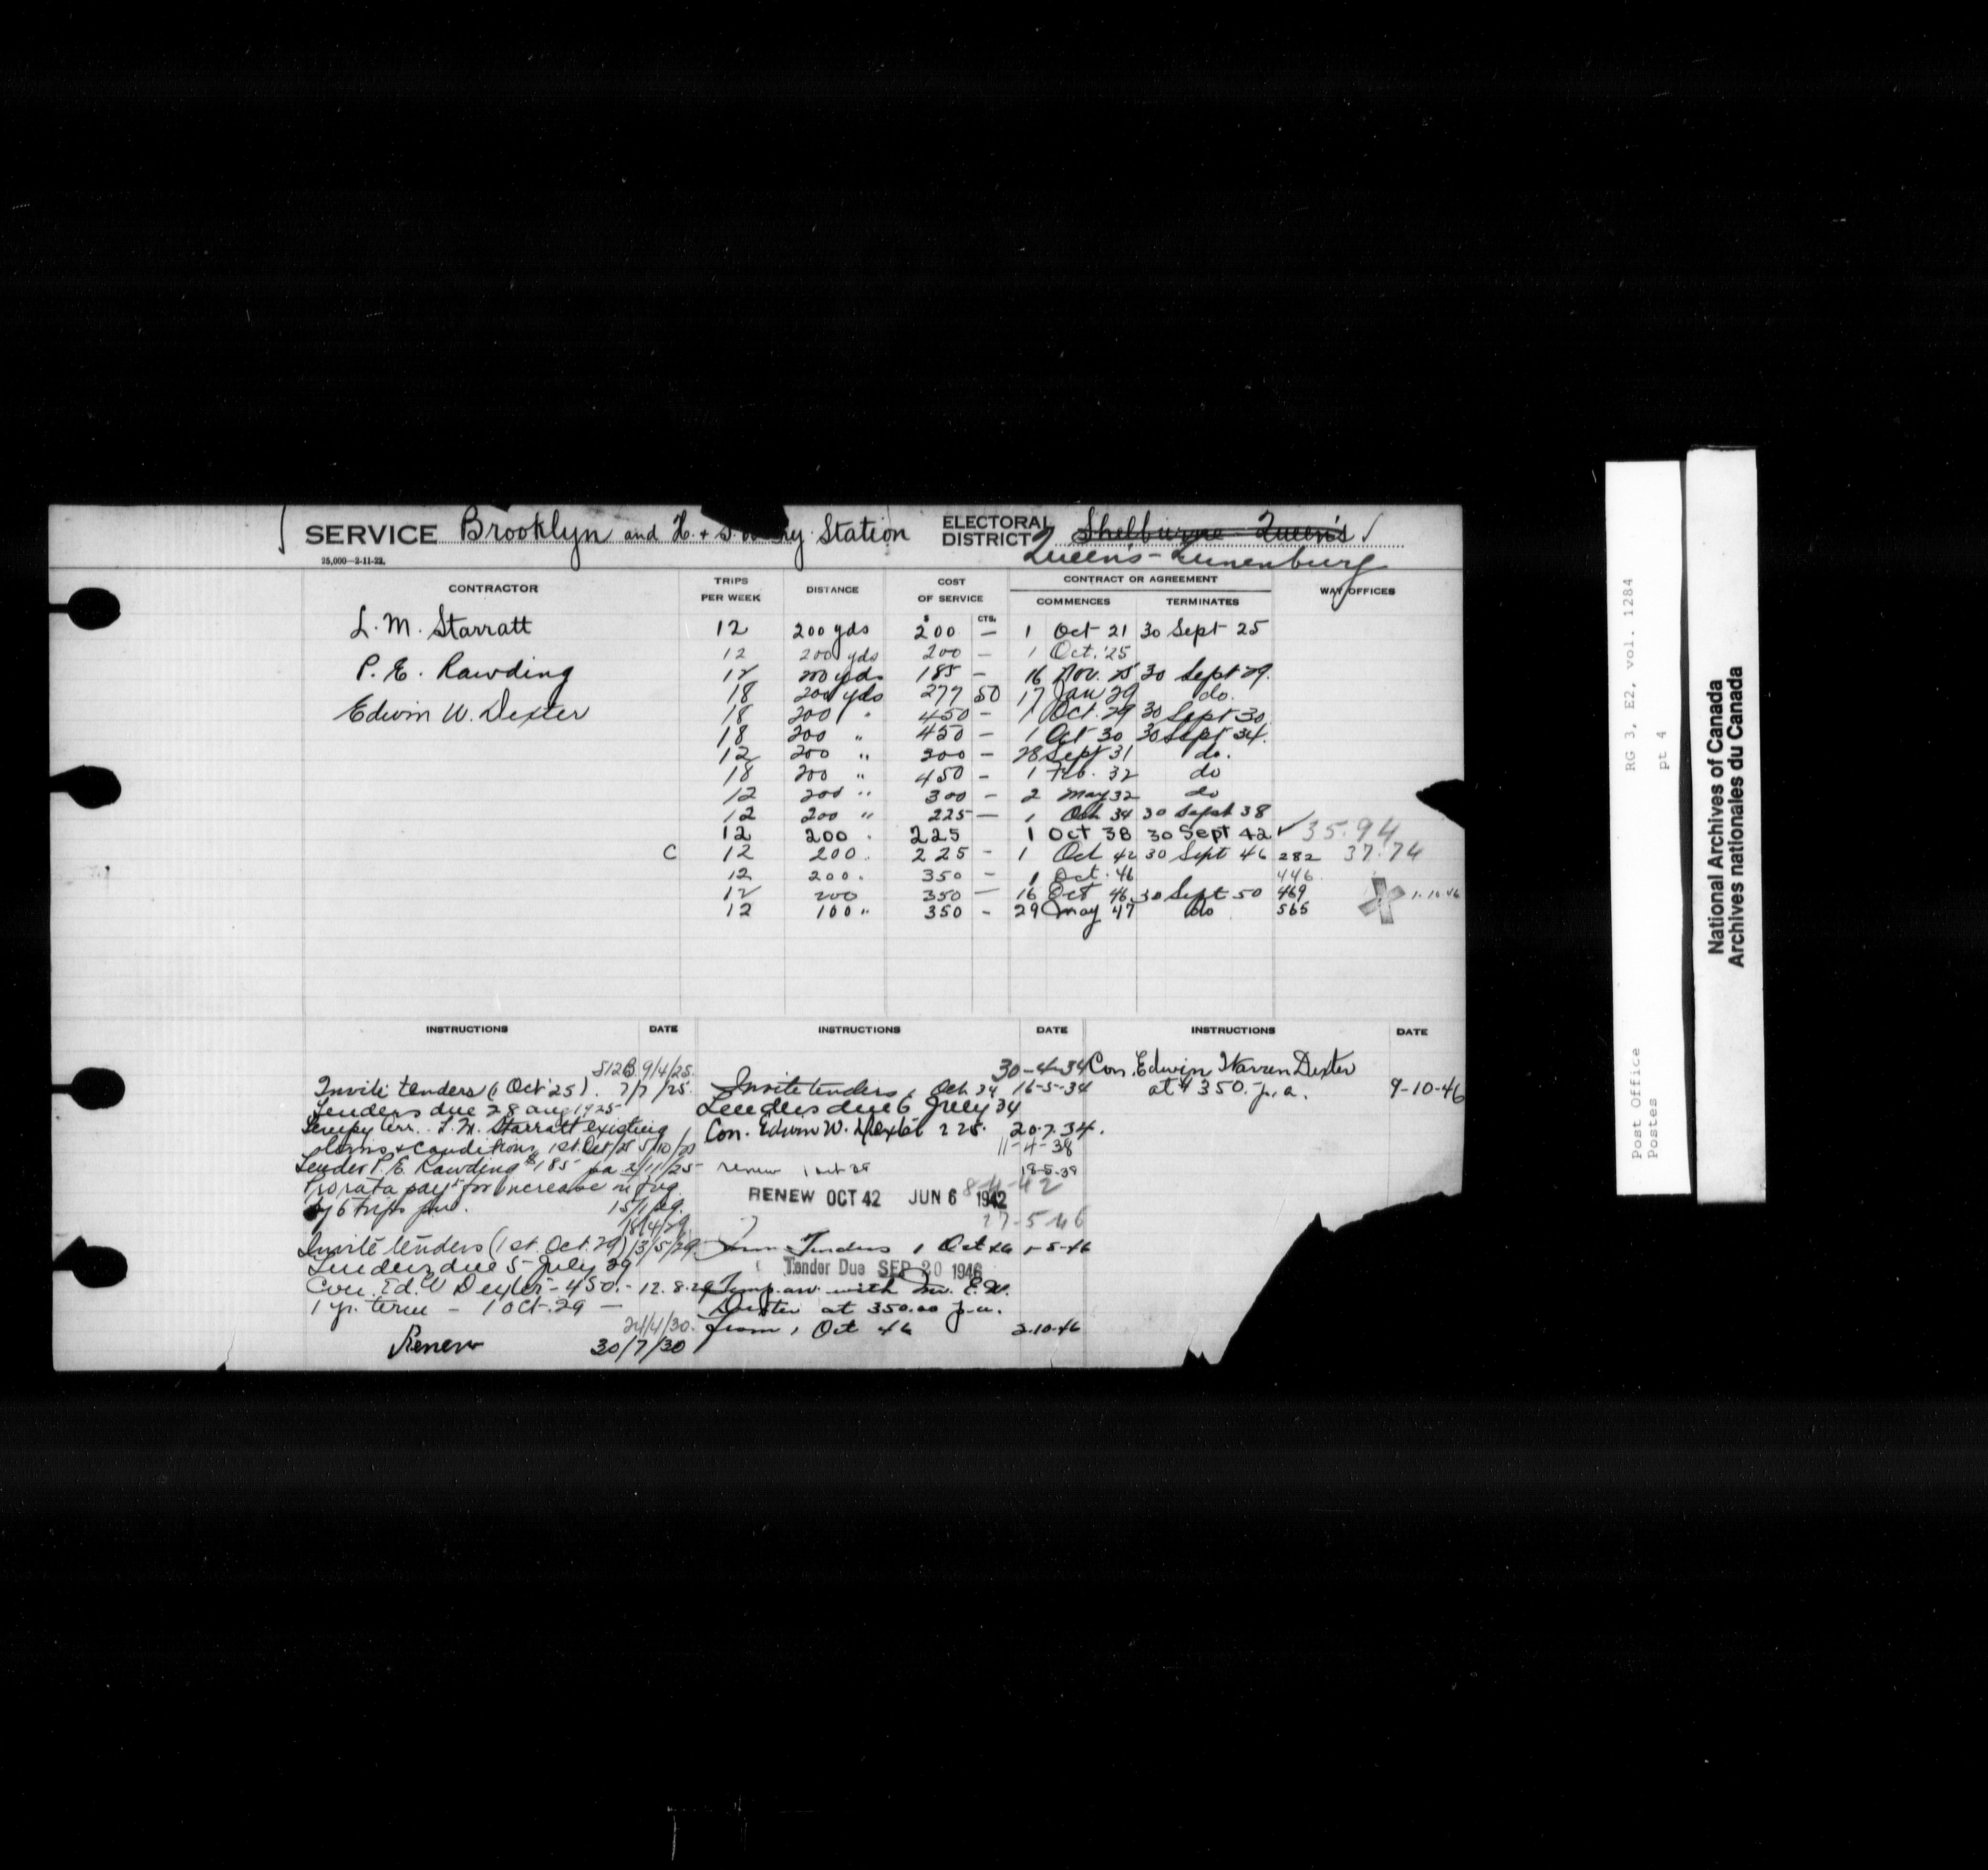 SERVICE Brooklyn and H. & S. Ry. Station ELECTORAL DISTRICT Shelburne-Queen's
Queen's-Lunenburg
25,000—2-11-22.
CONTRACTOR TRIPS PER WEEK DISTANCE COST OF SERVICE CONTRACT OR AGREEMENT WAY OFFICES
$ CTS. COMMENCES TERMINATES
L. M. Starratt 12 200 yds 200 — 1 Oct 21 30 Sept 25
12 200 yds 200 — 1 Oct. '25
P. E. Rawding 12 200 yds 185 — 16 Nov. 25 30 Sept 29.
18 200 yds 277 50 17 Jan 29 do.
Edwin W. Dexter 18 200 " 450 - 1 Oct. 29 30 Sept 30.
18 200 " 450 — 1 Oct 30 30 Sept 34.
12 200 " 300 — 28 Sept 31 do.
18 200 " 450 - 1 Feb. 32 do
12 200 " 300 - 2 May 32 do
12 200 " 225 — 1 Oct 34 30 Sept 38
12 200 . 225 1 Oct 38 30 Sept 42 ✓ 35.94
C 12 200 . 225 - 1 Oct 42 30 Sept 46 282 37.74
12 200 . 350 — 1 Oct. 46 446
12 200 350 — 16 Oct 46 30 Sept 50 469 1-10-46
12 100 " 350 - 29 May 47 do 565
INSTRUCTIONS DATE
512B 9/4/25.
Invite tenders (1 Oct '25). 7/7/25.
Tenders due 28 Aug 1925
Tempy arr. L. M. Starratt existing
terms & conditions 1st Oct/25 5/10/25
Tender P. E. Rawding $185 pa 2/11/25
Pro rata payt for increase in frq.
of 6 trips pw. 15/1/29.
18/4/29
Invite tenders (1st. Oct. 29) 13/5/29
Tenders due 5 July 29
Con. Ed. W Dexter - 450. - 12.8.29
1 yr. term — 1 Oct. 29 —
24/4/30.
Renew 30/7/30
INSTRUCTIONS DATE
30-4-34
Invite tenders 1 Oct 34 16-5-34
Tenders due 6 July 34
Con. Edwin W. Dexter 225. 20.7.34.
11-4-38
renew 1 Oct 38 18-5-38
8-4-42
RENEW OCT 42 JUN 6 1942
27-5-46
Tenders 1 Oct 46 1-8-46
Tender Due SEP 20 1946
Temp. arr. with Mr. E. W.
Dexter at 350.00 p.a.
from 1 Oct 46 2-10-46
INSTRUCTIONS DATE
Con. Edwin Warren Dexter
at $350. p.a. 9-10-46
RG 3, E2, vol. 1284
pt 4
Post Office
Postes
National Archives of Canada
Archives nationales du Canada